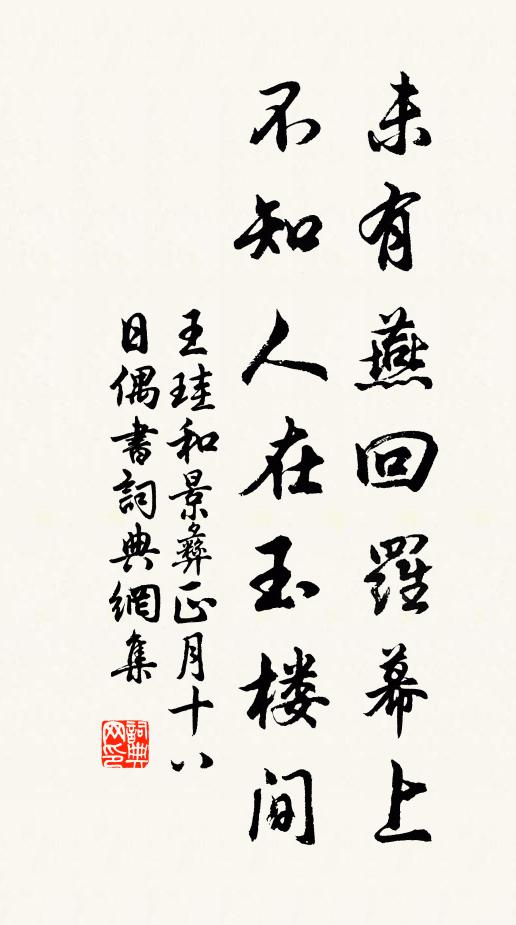 未有燕回羅幕上
不知人在玉楼间
王珪和景彝正月十八
日偶書詞典網集
詞典网印